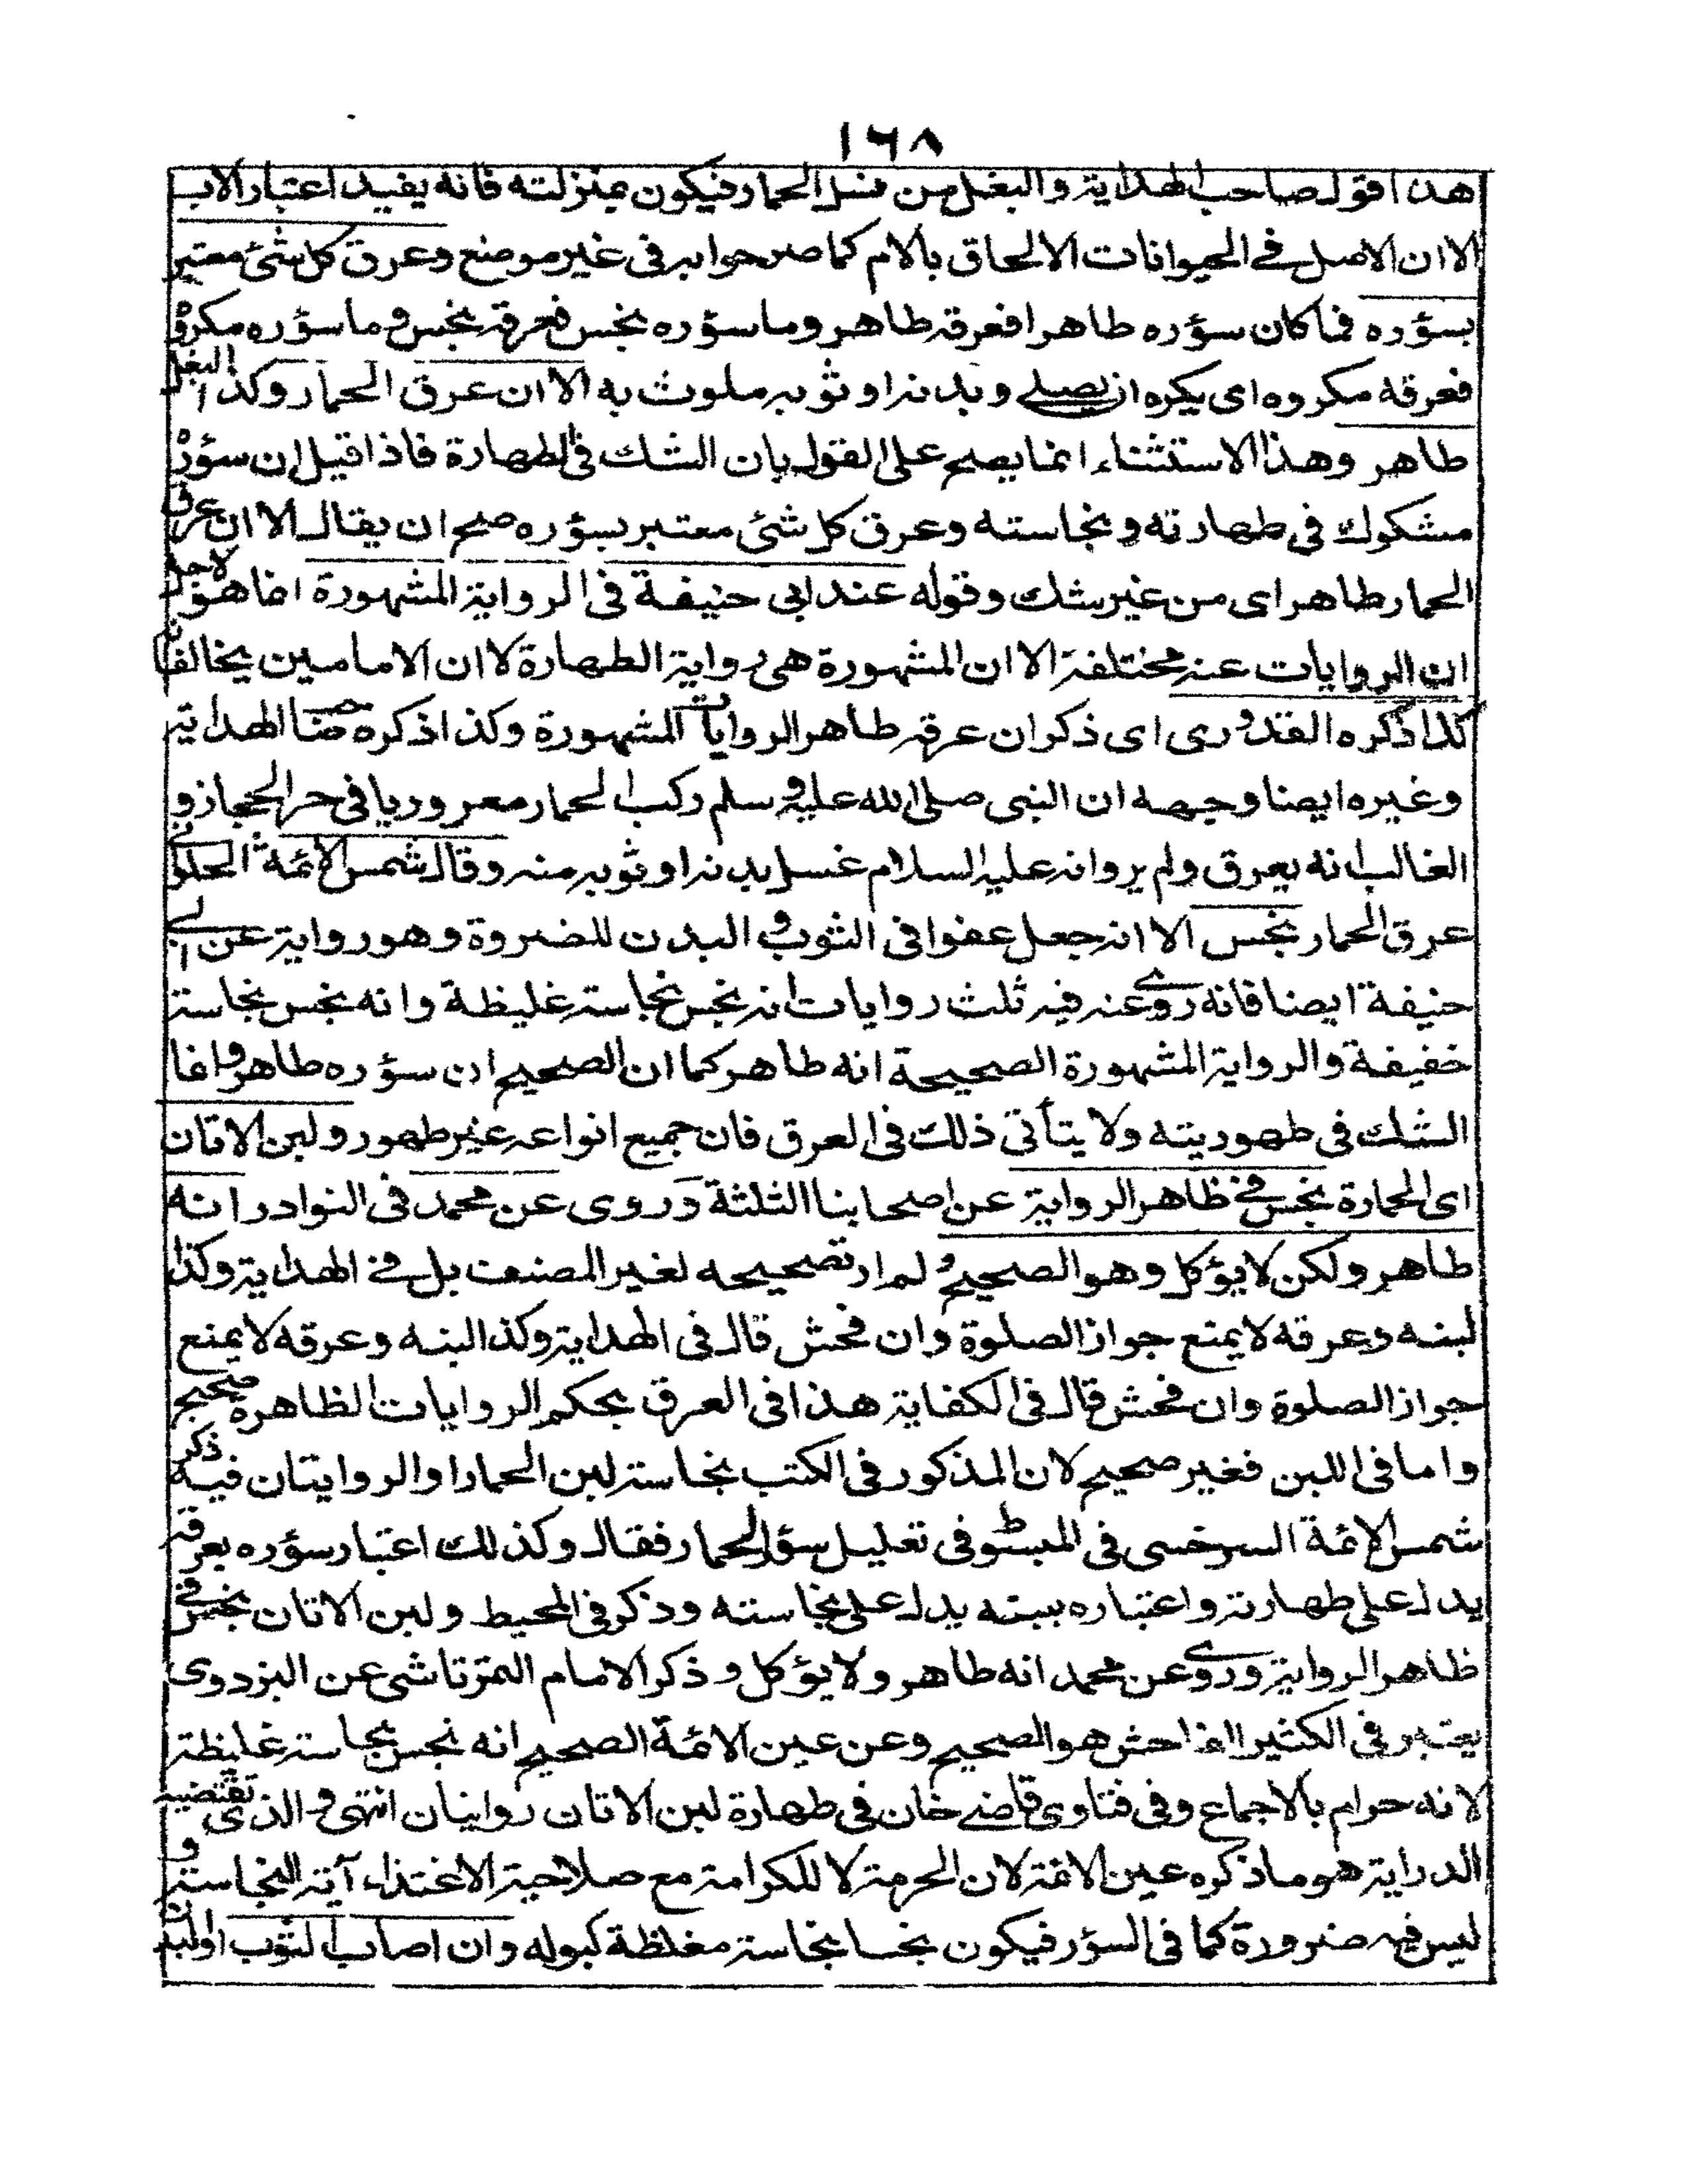 ١٦٨
هذا قول صاحب الهداية والبغل من نسل الحمار فيكون بمنزلته فانه يفيد اعتبار الاب
الا ان الاصل في الحيوانات الالحاق بالام كما صرحوا به في غير موضع وعرق كل شئ معتبر
بسؤره فما كان سؤره طاهرا فعرقه طاهر وما سؤره نجس فعرقه نجس وما سؤره مكروه
فعرقه مكروه اى يكره ان يصلي وبدنه او ثوبه ملوث به الا ان عرق الحمار وكذا البغل
طاهر وهذا الاستثناء انما يصح على القول بان الشك في الطهارة فاذا قيل ان سؤره
مشكوك في طهارته ونجاسته وعرق كل شئ معتبر بسؤره صح ان يقال الا ان عرق
الحمار طاهر اى من غير شك وقوله عند ابى حنيفة في الرواية المشهورة انما هو لاجل
ان الروايات عنه مختلفة الا ان المشهورة هى رواية الطهارة لا ان الامامين يخالفانه
كذا ذكره القدورى اى ذكر ان عرقه طاهر الروايات المشهورة وكذا ذكره صاحب الهداية
وغيره ايضا وجهه ان النبى صلى الله عليه وسلم ركب الحمار معروريا في حر الحجاز و
الغالب انه يعرق ولم يرو انه عليه السلام غسل بدنه او ثوبه منه وقال شمس الائمة الحلوانى
عرق الحمار نجس الا انه جعل عفوا فى الثوب والبدن للضروة وهو رواية عن ابى
حنيفة ايضا فانه روى عنه فيه ثلث روايات انه نجس نجاسة غليظة وانه نجس نجاسة
خفيفة والرواية المشهورة الصحيحة انه طاهر كما ان الصحيح ان سؤره طاهر وانما
الشك في طهوريته ولا يتأتى ذلك في العرق فان جميع انواعه غير طهور ولبن الاتان
اى الحمارة نجس في ظاهر الرواية عن اصحابنا الثلثة وروى عن محمد في النوادر انه
طاهر ولكن لا يؤكل وهو الصحيح ولم ار تصحيحه لغير المصنف بل في الهداية وكذا
لبنه وعرقه لا يمنع جواز الصلوة وان فحش قال في الهداية وكذا لبنه وعرقه لا يمنع
جواز الصلوة وان فحش قال في الكفاية هذا في العرق بحكم الروايات الظاهرة صحيح
واما في اللبن فغير صحيح لان المذكور في الكتب نجاسة لبن الحمار او الروايتان فيه ذكر
شمس الائمة السرخسى في المبسوط في تعليل سؤر الحمار فقال وكذلك اعتبار سؤره بعرقه
يدل على طهارته واعتباره ببنه يدل على نجاسته وذكر في المحيط ولبن الاتان نجس في
ظاهر الرواية وروى عن محمد انه طاهر ولا يؤكل وذكر الامام التمرتاشى عن البزدوى
يعتبر في الكثير الفاحش هو الصحيح وعن عين الائمة الصحيح انه نجس نجاسة غليظة
لانه حرام بالاجماع وفى فتاوى قاضي خان في طهارة لبن الاتان روايتان انتهى والذى تقتضيه
الدراية هو ما ذكره عين الائمة لان الحرمة لا للكرامة مع صلاحية الاغتذاء آية النجاسة و
ليس فيه ضرورة كما في السؤر فيكون نجسا نجاسة مغلظة كبوله وان اصاب الثوب